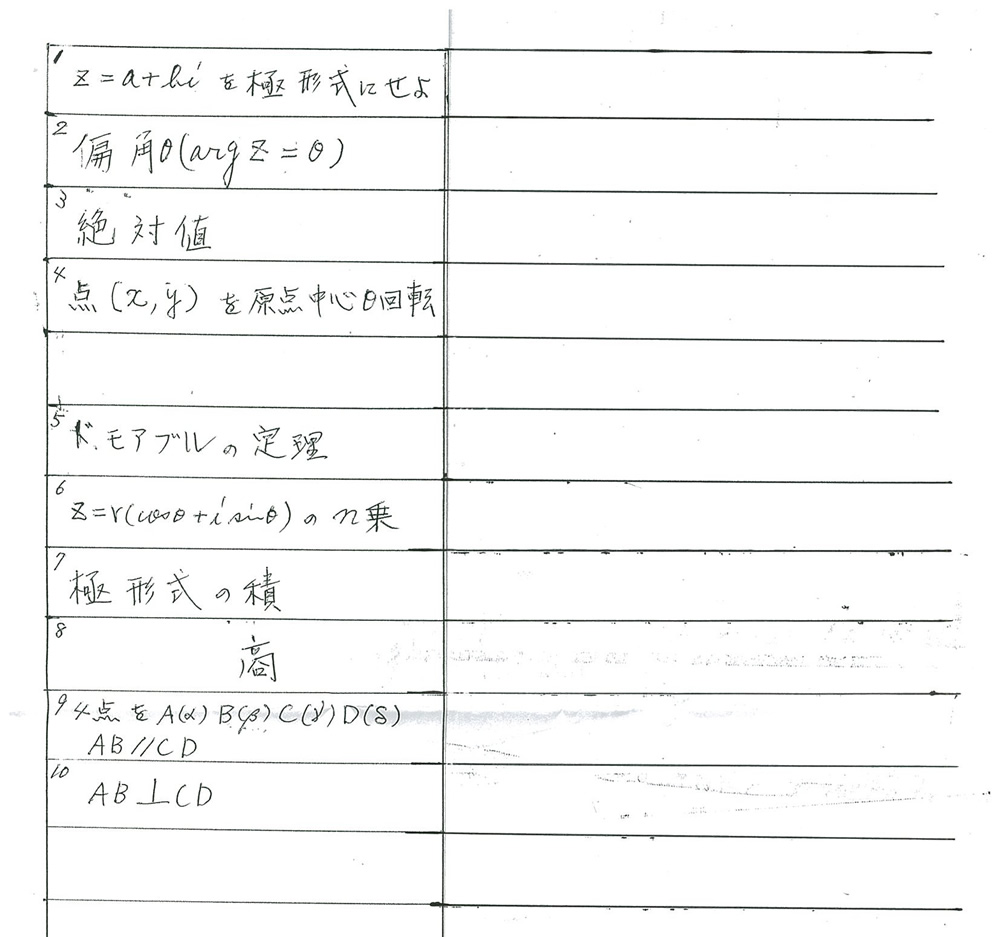 1 z=a+biを極形式にせよ
2 偏角θ(arg z=θ)
3 絶対値
4 点(x,y)を原点中心θ回転
5 ド・モアブルの定理
6 z=r(cosθ+i sinθ)のn乗
7 極形式の積
8 商
9 4点をA(α)B(β)C(γ)D(δ)
AB//CD
10 AB⊥CD